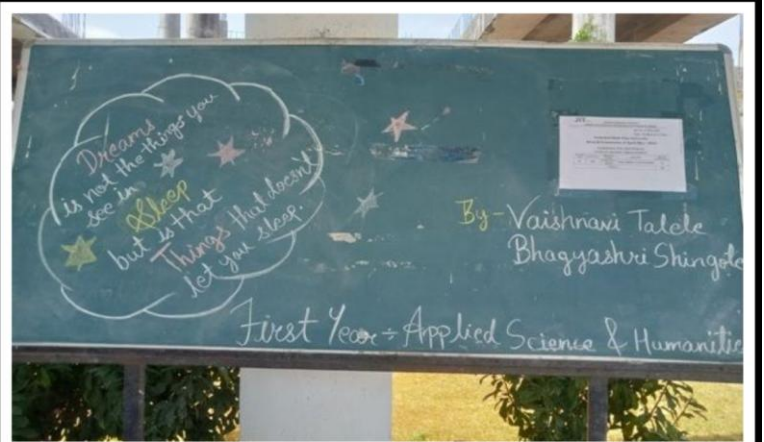 Dreams
is not the things you
see in Sleep
but is that
Things that doesn't
let you sleep.
By - Vaishnavi Talele
Bhagyashri Shingote
First Year ÷ Applied Science & Humanitie